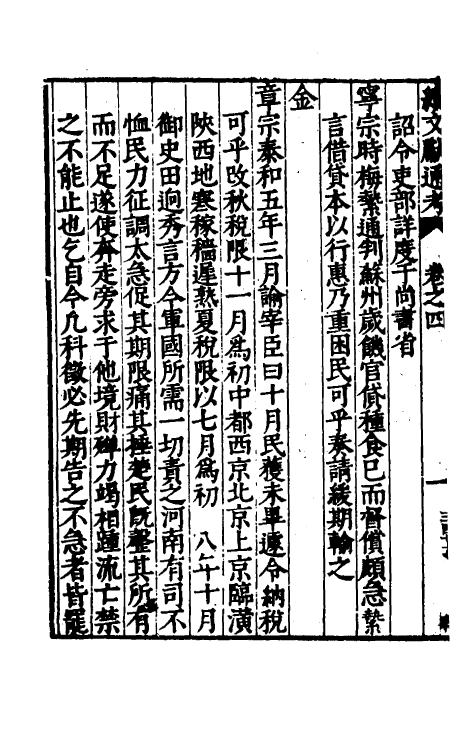 續文獻通考 卷之四
詔令吏部詳度于尚書省
寧宗時梅縶通判蘇州歲饑官貸種食已而督償頗急縶
言借貸本以行惠乃重困民可乎奏請緩期輸之
金
章宗泰和五年三月諭宰臣曰十月民穫未畢遽令納稅
可乎改秋稅限十一月爲初中都西京北京上京臨潢
陝西地寒稼穡遲熟夏稅限以七月爲初 八年十月
御史田逈秀言方今軍國所需一切責之河南有司不
恤民力征調太急促其期限痛其捶楚民旣罄其所有
而不足遂使奔走旁求于他境財殫力竭相踵流亡禁
之不能止也乞自今凡科徵必先期告之不急者皆罷